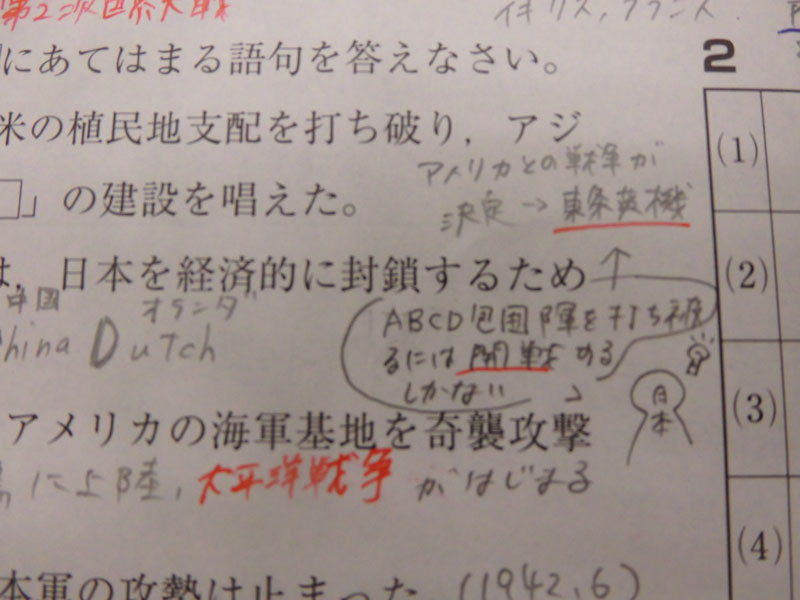 第2次世界大戦
イギリス,フランス
にあてはまる語句を答えなさい。
2
米の植民地支配を打ち破り，アジ
(1)
アメリカとの戦争が
」の建設を唱えた。
決定→東条英機
は，日本を経済的に封鎖するため
(2)
中国 オランダ
China Dutch
ABCD包囲陣を打ち破
るには開戦める
しかない
日本
(3)
アメリカの海軍基地を奇襲攻撃
に上陸,太平洋戦争がはじまる
(4)
本軍の攻勢は止まった (1942.6)